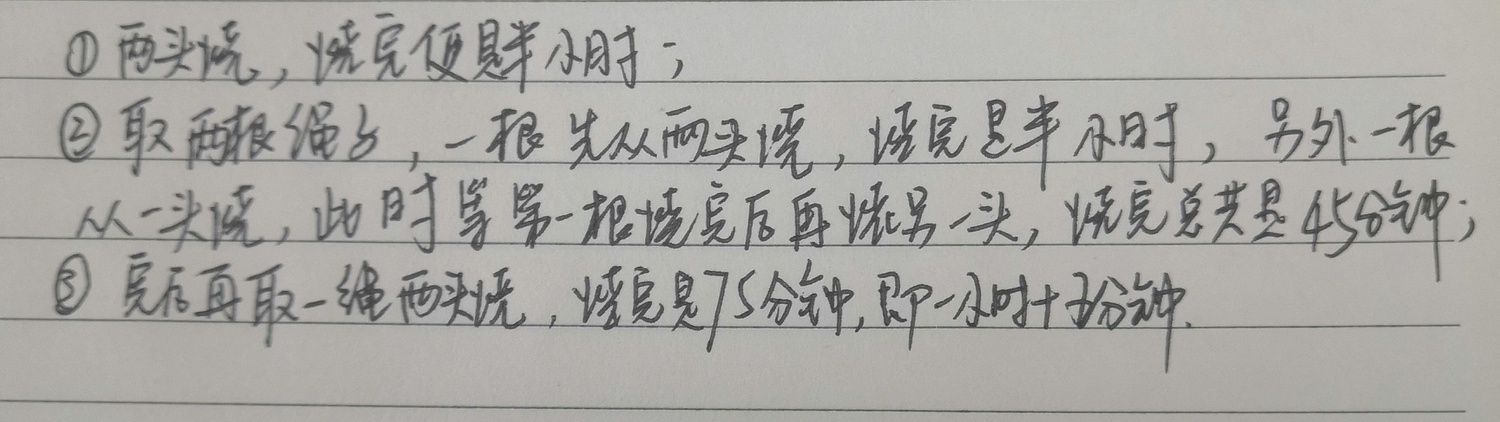 ①两头烧，烧完便是半小时；
②取两根绳子，一根先从两头烧，烧完是半小时，另外一根
从一头烧，此时等第一根烧完后再烧另一头，烧完总共是45分钟；
③完后再取一绳两头烧，烧完是75分钟，即一小时十五分钟.